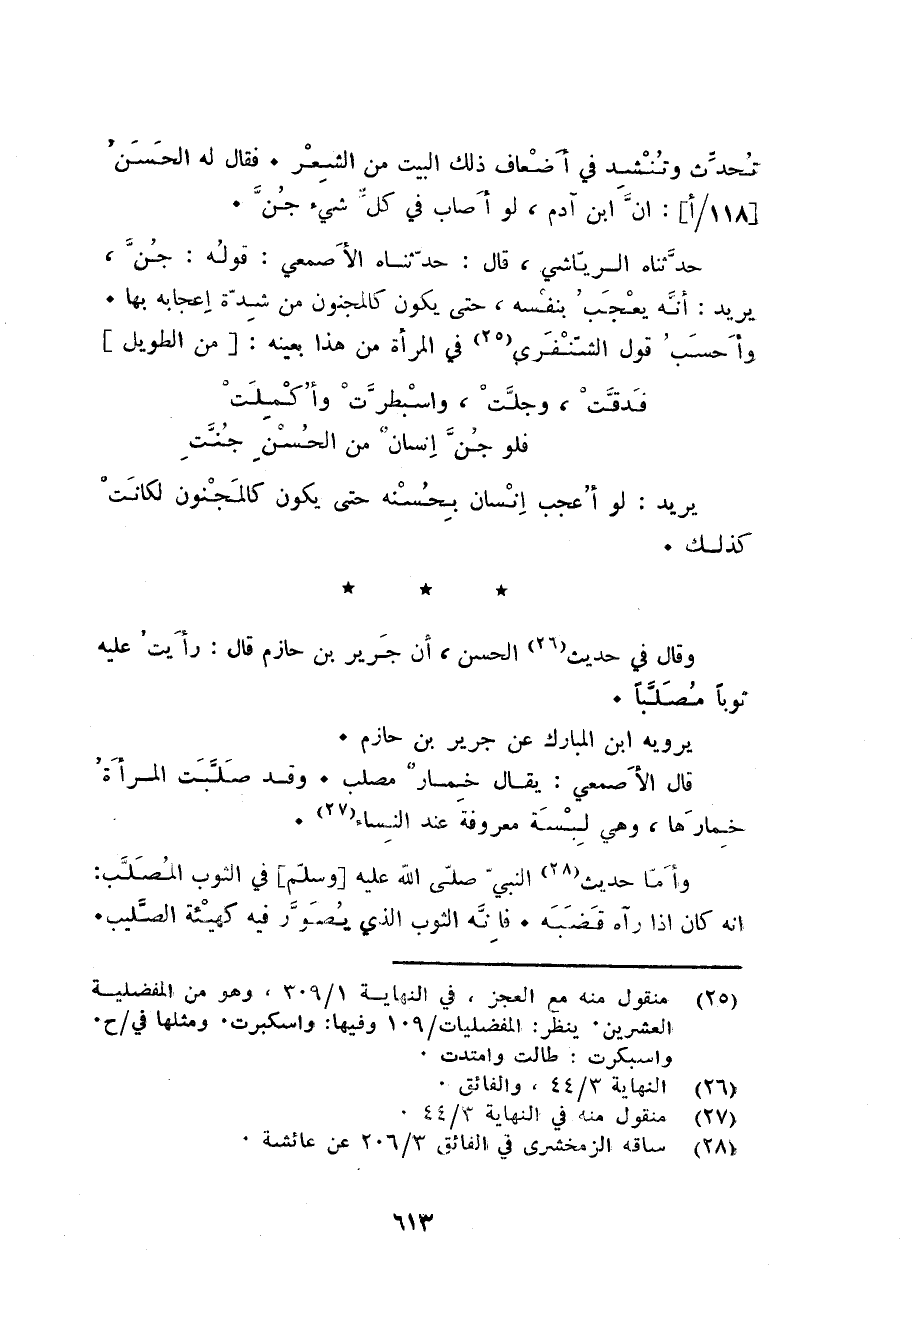 تُحدِّث وتُنْشِد في أَضْعاف ذلك البيت من الشِعْر • فقال له الحَسَنُ
[١١٨/أ] : انَّ ابن آدم ، لو أَصاب في كلِّ شيء جُنَّ •
حدَّثناه الرياشي ، قال : حدّثناه الأَصمعي : قولُه : جُنَّ ،
يريد : أنَّه يعْجَبُ بنفْسه ، حتى يكون كالمجنون من شدّة إعجابه بها •
وأَحسَبُ قول الشَنْفَرى(٢٥) في المرأة من هذا بعينه : [ من الطويل ]
فَدقَّتْ ، وجلَّتْ ، واسْبَطرَّتْ وأُكْمِلَتْ
فلو جُنَّ إنسانٌ من الحُسْنِ جُنَّتِ
يريد : لو أُعجب إنْسان بِحُسْنه حتى يكون كالمَجْنون لكانَتْ
كذلك •
★ ★ ★
وقال في حديث(٢٦) الحسن ، أن جَرير بن حازم قال : رأَيتُ عليه
ثوباً مُصَلَّباً •
يرويه ابن المبارك عن جرير بن حازم •
قال الأَصمعي : يقال خِمارٌ مصلب • وقد صلَّبَت المرأَةُ
خِمارَها ، وهي لِبْسَة معروفة عند النِساء(٢٧) •
وأَمّا حديث(٢٨) النبيّ صلّى الله عليه [وسلّم] في الثوب المُصَلَّب:
انه كان اذا رآه قَضَبَه • فإنَّه الثوب الذي يُصَوَّر فيه كهيْئة الصَّليب•
(٢٥) منقول منه مع العجز ، في النهاية ٣٠٩/١ ، وهو من المفضلية
العشرين• ينظر: المفضليات/١٠٩ وفيها: واسكبرت• ومثلها في/ح•
واسبكرت : طالت وامتدت •
(٢٦) النهاية ٤٤/٣ ، والفائق •
(٢٧) منقول منه في النهاية ٤٤/٣ •
(٢٨) ساقه الزمخشرى في الفائق ٢٠٦/٣ عن عائشة •
٦١٣